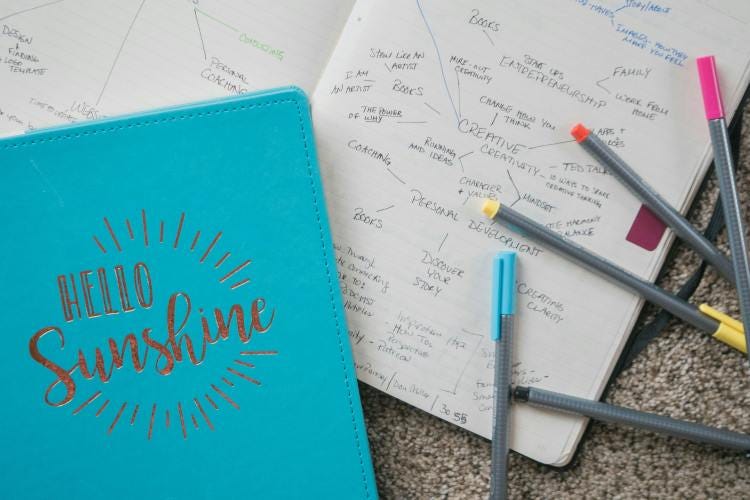 HELLO
Sunshine
DESIGN
+
FINDING
LOGO
TEMPLATE
CONSULTING
PERSONAL
COACHING
WEBSITE
BOOKS
STORY/ABOUT
IMAGES. HOW THEY
MAKE YOU FEEL
STEAL LIKE AN
ARTIST
HIRE-OUT
CREATIVITY
START UPS
ENTREPRENEURSHIP
FAMILY
WORK FROM
HOME
I AM
AN ARTIST
BOOKS
THE POWER
OF WHY
CHANGE HOW YOU
THINK
CREATIVE
CREATIVITY
APPS +
RUNNING
AND IDEAS
TED TALK
10 WAYS TO SPARK
CREATIVE THINKING
COACHING
CHARACTER
+ VALUES
MINDSET
PERSONAL DEVELOPMENT
HARMONY
BALANCE
BOOKS
DISCOVER
YOUR
STORY
CREATING
CLARITY
Inspiration
- How To's
- Perspective
- Patreon
30 55